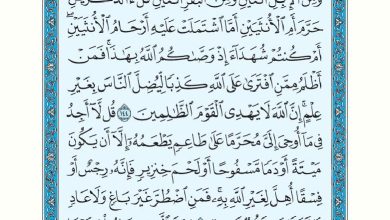 وَمِنَ ٱلۡإِبِلِ ٱثۡنَيۡنِ وَمِنَ ٱلۡبَقَرِ ٱثۡنَيۡنِۗ قُلۡ ءَآلذَّكَرَيۡنِ
حَرَّمَ أَمِ ٱلۡأُنثَيَيۡنِ أَمَّا ٱشۡتَمَلَتۡ عَلَيۡهِ أَرۡحَامُ ٱلۡأُنثَيَيۡنِۖ
أَمۡ كُنتُمۡ شُهَدَآءَ إِذۡ وَصَّىٰكُمُ ٱللَّهُ بِهَٰذَاۚ فَمَنۡ
أَظۡلَمُ مِمَّنِ ٱفۡتَرَىٰ عَلَى ٱللَّهِ كَذِبٗا لِّيُضِلَّ ٱلنَّاسَ بِغَيۡرِ
عِلۡمٍۚ إِنَّ ٱللَّهَ لَا يَهۡدِي ٱلۡقَوۡمَ ٱلظَّٰلِمِينَ ١٤٤ قُل لَّآ أَجِدُ
فِي مَآ أُوحِيَ إِلَيَّ مُحَرَّمًا عَلَىٰ طَاعِمٖ يَطۡعَمُهُۥٓ إِلَّآ أَن يَكُونَ
مَيۡتَةً أَوۡ دَمٗا مَّسۡفُوحًا أَوۡ لَحۡمَ خِنزِيرٖ فَإِنَّهُۥ رِجۡسٌ أَوۡ
فِسۡقًا أُهِلَّ لِغَيۡرِ ٱللَّهِ بِهِۦۚ فَمَنِ ٱضۡطُرَّ غَيۡرَ بَاغٖ وَلَا عَادٖ